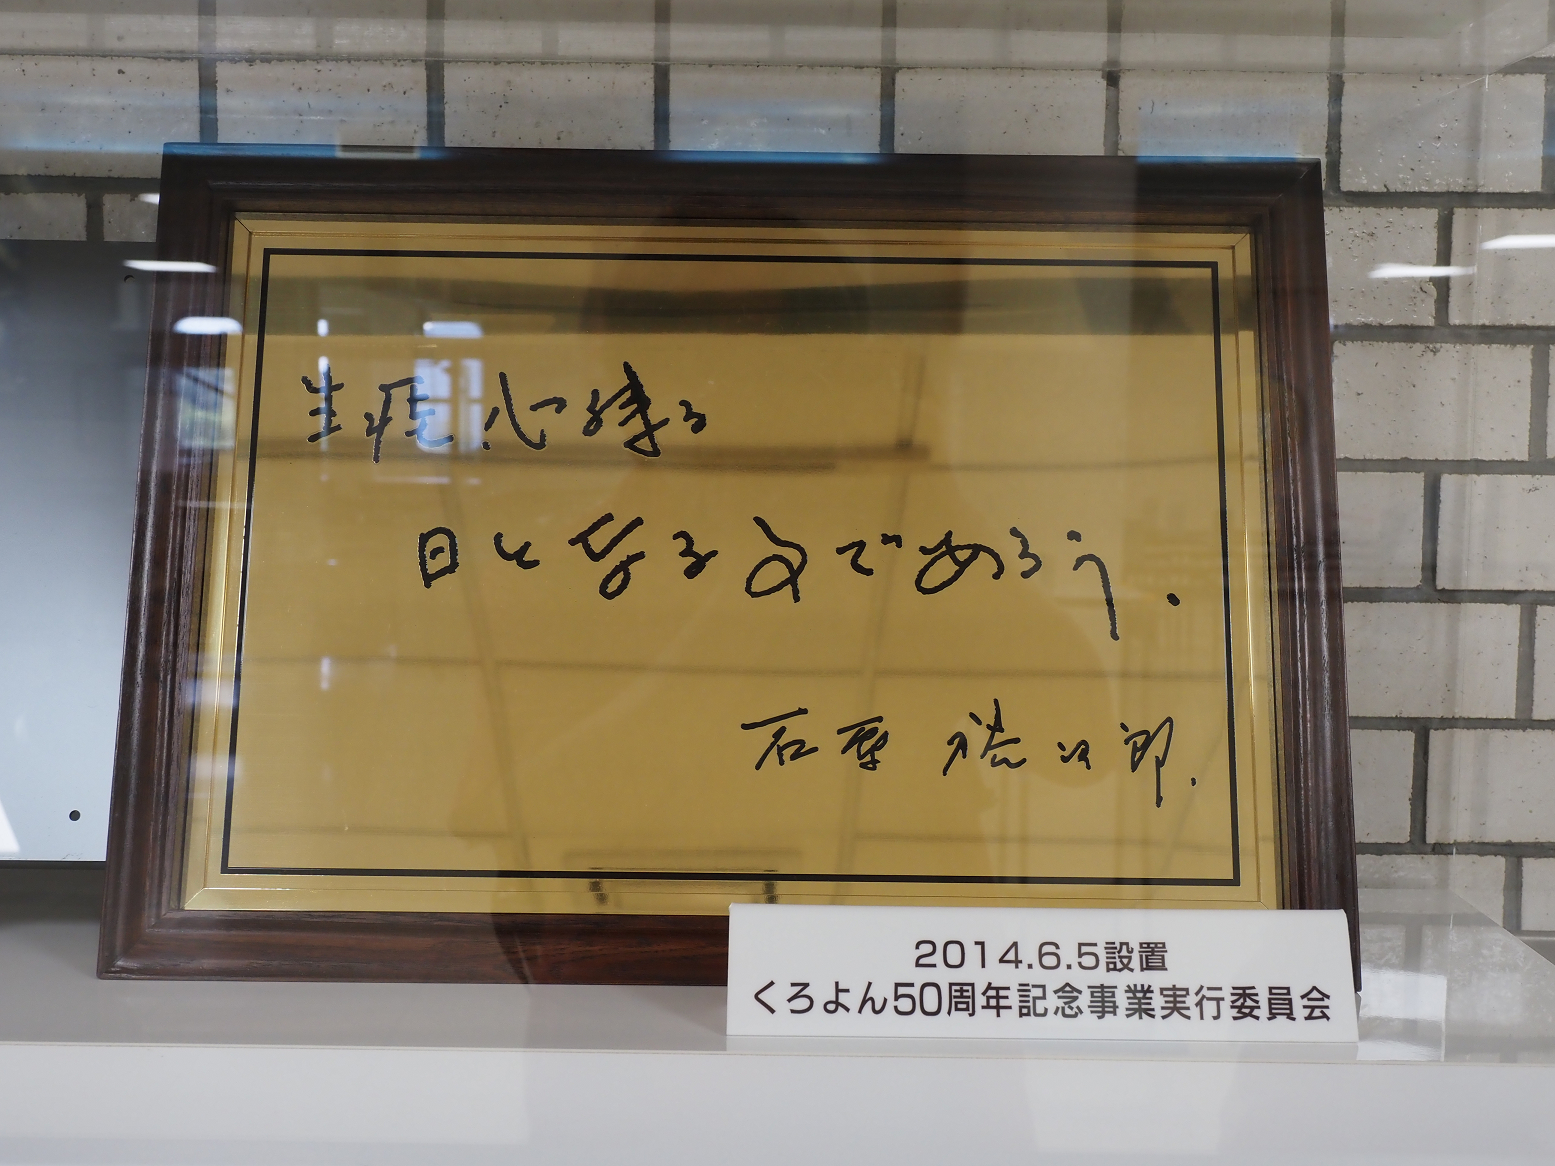 生涯心残る
日となるであろう.
石原 裕次郎.
2014.6.5設置
くろよん50周年記念事業実行委員会